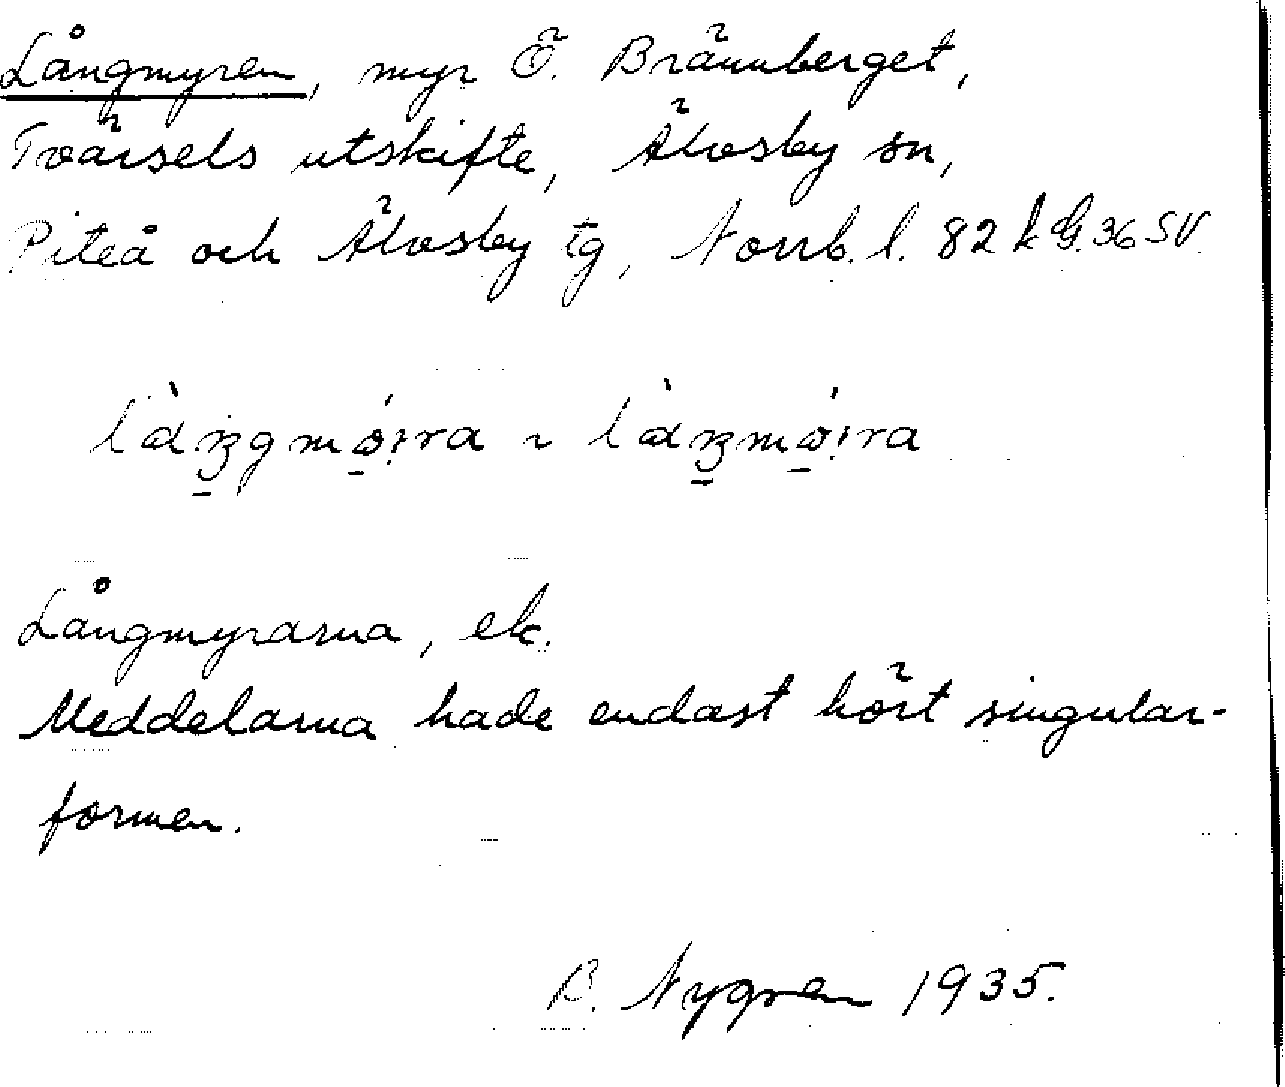 Långmyren, myr Ö. Brännberget,
Tvärsels utskifte, Älvsby sn,
Piteå och Älvsby tg, Norrb. l. 82 k G. 36 SV.
Långmyrarna, ek.
Meddelarna hade endast hört singular-
formen.
B. Nygren 1935.